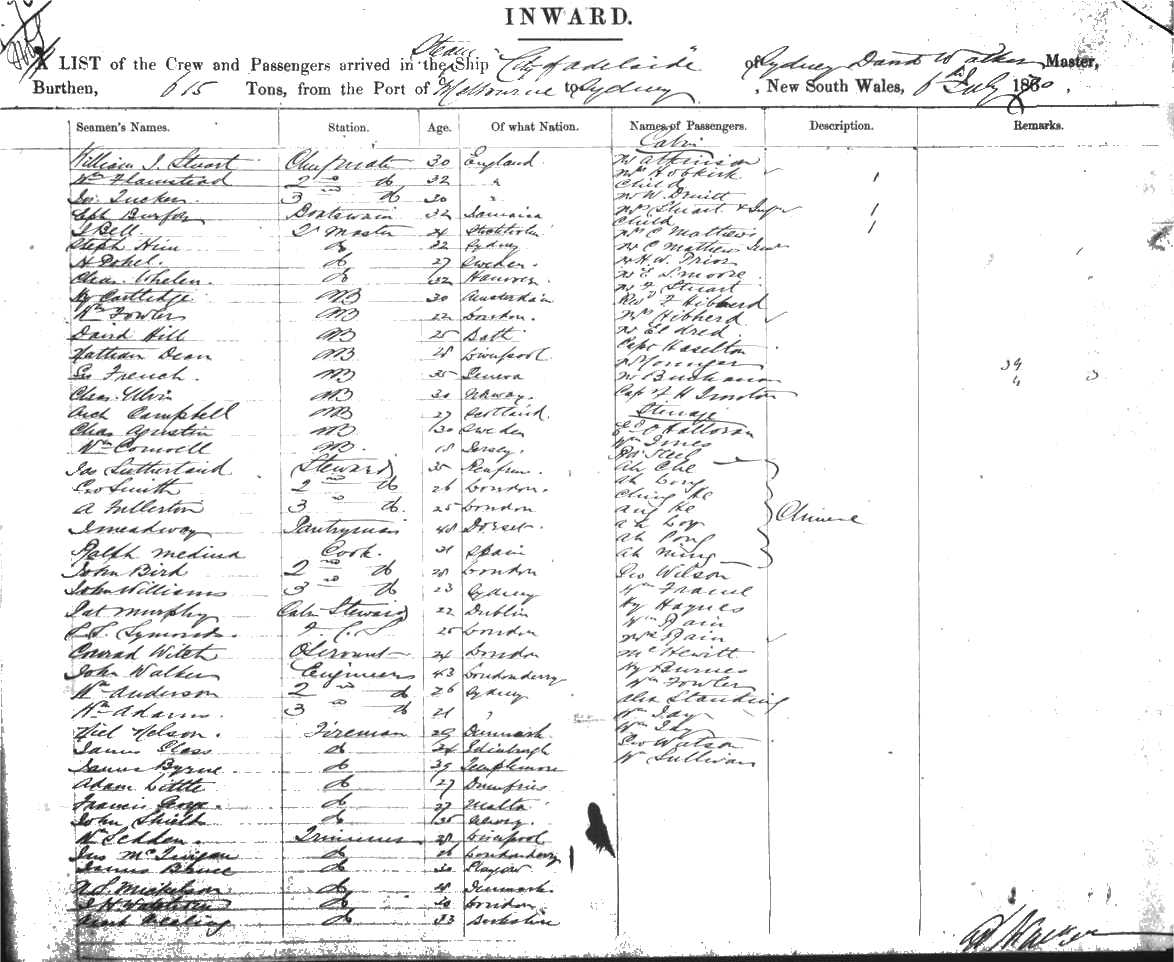 INWARD.
A LIST of the Crew and Passengers arrived in the Steam Ship "City of Adelaide" of Sydney David Walker Master,
Burthen, 615 Tons, from the Port of Melbourne to Sydney, New South Wales, 6th July 1870.
Seamen's Names. Station. Age. Of what Nation. Names of Passengers. Description. Remarks.
Cabin
William J. Stuart Chief Mate 30 England Mr Atkinson
Wm Flamstead 2nd do 32 " Mrs Hobkirk
Child 1
Jos. Tucker 3rd do 30 " Mr W. Druitt
Boatswain 32 Jamaica Mrs Stuart & 1
Child 1
J Bell Qr Master 24 Mrs C Mathews
Steph Him do 22 Sydney Mr C Mathews Junr
H do 27 Sweden Mr H. W. Prior
Chas. Whelen do 32 Hanover Mr S Moore
Hy Cartledge AB 30 Amsterdam Mr F Stuart
Wm Fowler AB 22 London Revd F Hibberd
Mrs Hibberd
David Hill AB 25 Bath Mr Eldred
Nathan Dean AB 28 Liverpool Capt Haselton
Geo French AB 35 Geneva Mr Buchanan 39
Chas. Ulvin AB 30 Norway Capt F H
4 3
Arch Campbell AB 27 Scotland Steerage
Chas Agustin AB 30 Sweden O'Halloran
Wm Cornwell AB 18 Jersey Wm Innes
Jas Sutherland Steward 35 Renfrew Steel
Ah Che
Geo Smith 2nd do 26 London Ah Long
Ching He
A Fullerton 3rd do 25 London Ang He
Chinese
J Meadway Pantryman 48 Dorset Ah Loy
Ah Pong
Ralph Medina Cook. 21 Spain Ah Ning
John Bird 2nd do 28 London Geo Wilson
John Williams 3rd do 23 Sydney Wm Frame
Pat Murphy Cabin Steward 22 Dublin Hy Haynes
L. Symonds 25 London Wm Bain
Mrs Bain
Conrad Witch 24 London Mc Hewitt
John Walker Engineers 43 Londonderry Hy Burnes
Wm Anderson 2nd do 26 Sydney Wm Fowler
Wm Adams 3rd do 21 " Alex Standing
Niel Nelson. Fireman 29 Denmark Wm Jay
Wm Jay
James Glass do 24 Edinburgh Geo Watson
James Byrne do 39 Templemore W Sullivan
Adam Little do 27 Dumfries
Francis George do 27 Malta
John Shiells do 35 Newry
Wm Seddon Trimmers 28 Liverpool
Jas McGuigan do 26 Londonderry
James Bruce do 30 Glasgow
N S Mickelson do 28 Denmark
do 30 London
do 33 Berkshire
D Walker